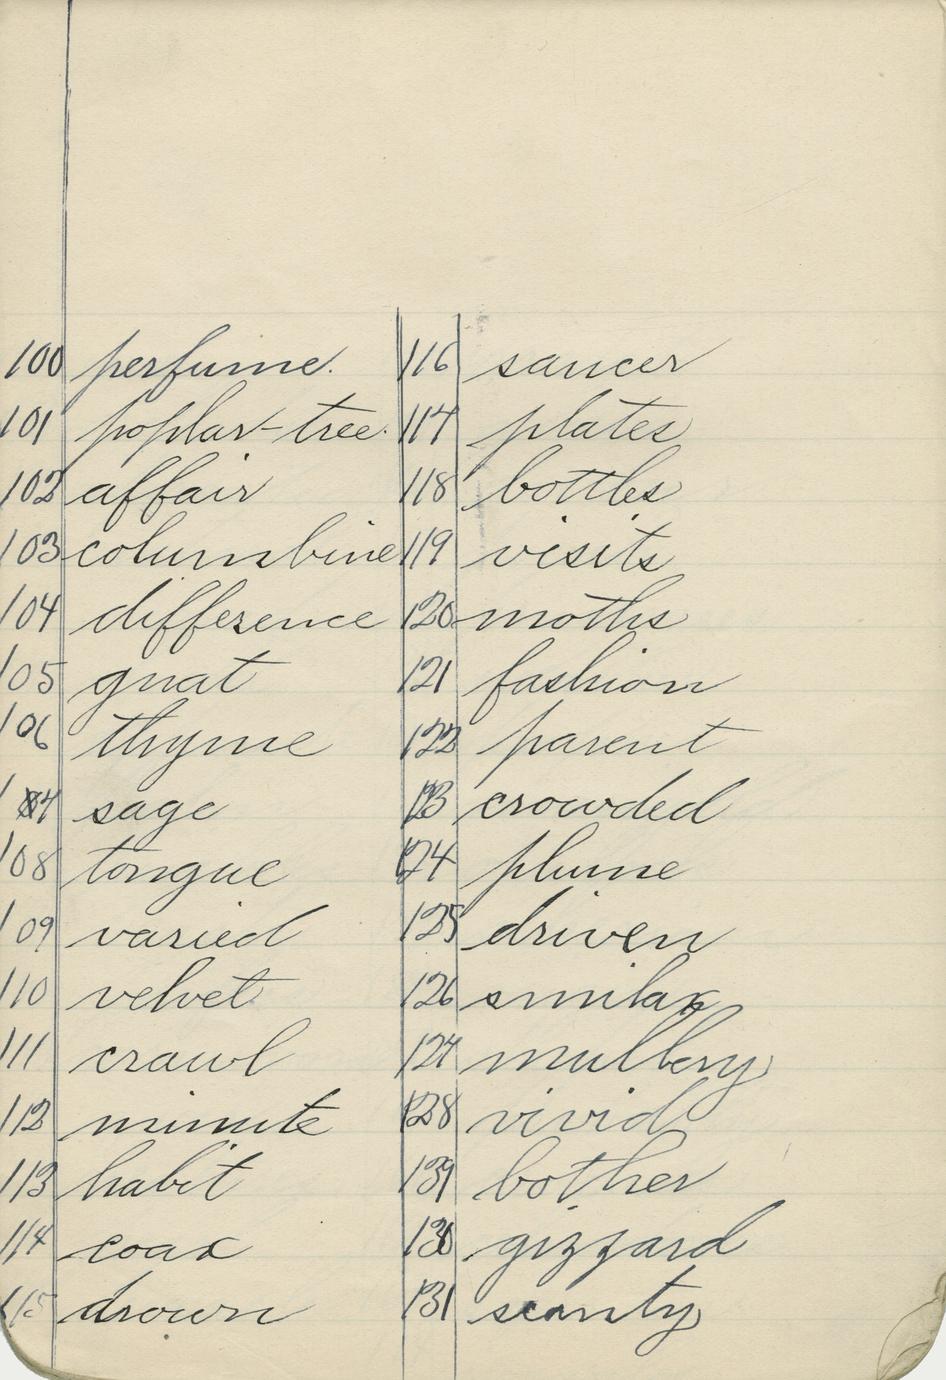 100 perfume.
101 poplar-tree.
102 affair
103 columbine
104 difference
105 gnat
106 thyme
107 sage
108 tongue
109 varied
110 velvet
111 crawl
112 minute
113 habit
114 coax
115 drown
116 saucer
117 plates
118 bottles
119 visits
120 moths
121 fashion
122 parent
123 crowded
124 plume
125 driven
126 smilax
127 mulbery
128 vivid
139 bother
130 gizzard
131 scanty